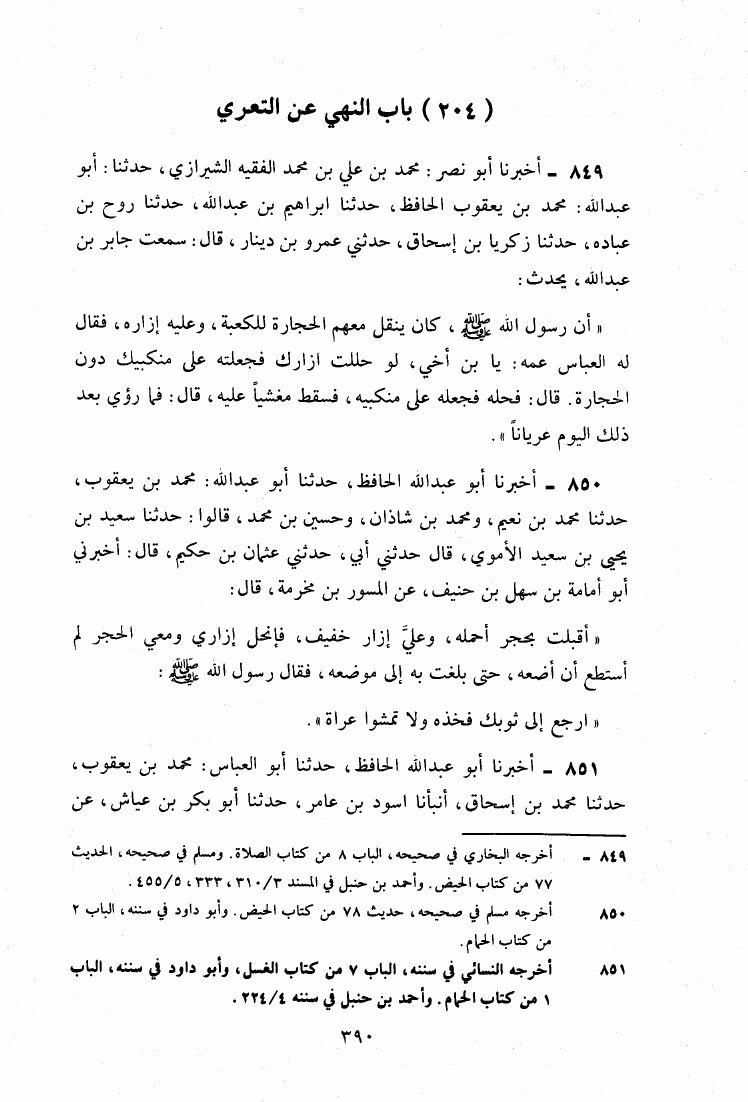 ( ٢٠٤ ) باب النهي عن التعري
٨٤٩ ـ أخبرنا أبو نصر : محمد بن علي بن محمد الفقيه الشيرازي ، حدثنا : أبو
عبدالله : محمد بن يعقوب الحافظ ، حدثنا ابراهيم بن عبدالله ، حدثنا روح بن
عباده ، حدثنا زكريا بن إسحاق ، حدثني عمرو بن دينار ، قال : سمعت جابر بن
عبدالله ، يحدث :
« أن رسول الله ﷺ ، كان ينقل معهم الحجارة للكعبة ، وعليه إزاره ، فقال
له العباس عمه : يا بن أخي ، لو حللت ازارك فجعلته على منكبيك دون
الحجارة . قال : فحله فجعله على منكبيه ، فسقط مغشياً عليه ، قال : فما رؤي بعد
ذلك اليوم عرياناً » .
٨٥٠ ـ أخبرنا أبو عبدالله الحافظ ، حدثنا أبو عبدالله : محمد بن يعقوب ،
حدثنا محمد بن نعيم ، ومحمد بن شاذان ، وحسين بن محمد ، قالوا : حدثنا سعيد بن
يحيى بن سعيد الأموي ، قال حدثني أبي ، حدثني عثمان بن حكيم ، قال : أخبرني
أبو أمامة بن سهل بن حنيف ، عن المسور بن مخرمة ، قال :
« أقبلت بحجر أحمله ، وعليَّ إزار خفيف ، فإنحل إزاري ومعي الحجر لم
أستطع أن أضعه ، حتى بلغت به إلى موضعه ، فقال رسول الله ﷺ :
« ارجع إلى ثوبك فخذه ولا تمشوا عراة » .
٨٥١ ـ أخبرنا أبو عبدالله الحافظ ، حدثنا أبو العباس : محمد بن يعقوب ،
حدثنا محمد بن إسحاق ، أنبأنا اسود بن عامر ، حدثنا أبو بكر بن عياش ، عن
٨٤٩ ـ أخرجه البخاري في صحيحه ، الباب ٨ من كتاب الصلاة . ومسلم في صحيحه ، الحديث
٧٧ من كتاب الحيض . وأحمد بن حنبل في المسند ٣/ ٣١٠ ، ٣٣٣ ، ٥/ ٤٥٥ .
٨٥٠ أخرجه مسلم في صحيحه ، حديث ٧٨ من كتاب الحيض . وأبو داود في سننه ، الباب ٢
من كتاب الحمام .
٨٥١ أخرجه النسائي في سننه ، الباب ٧ من كتاب الغسل ، وأبو داود في سننه ، الباب
١ من كتاب الحمام . وأحمد بن حنبل في سننه ٤/ ٢٢٤ .
٣٩٠